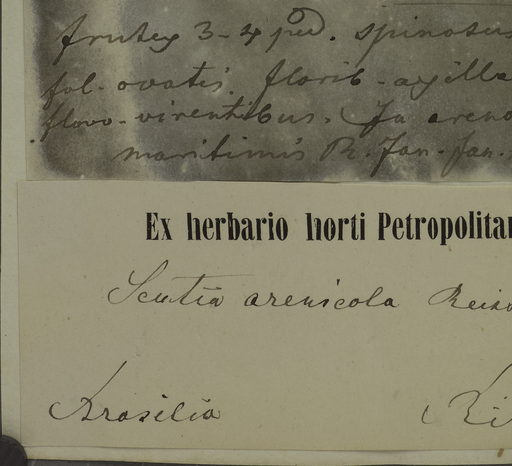 frutex 3-4 ped. spinosus
fol. ovatis. florib-axilla
flavo-virentibus. In areno
maritimis R. Jan. Jan.
Ex herbario horti Petropolitan
Scutia arenicola Reiss
Brasilia Ri